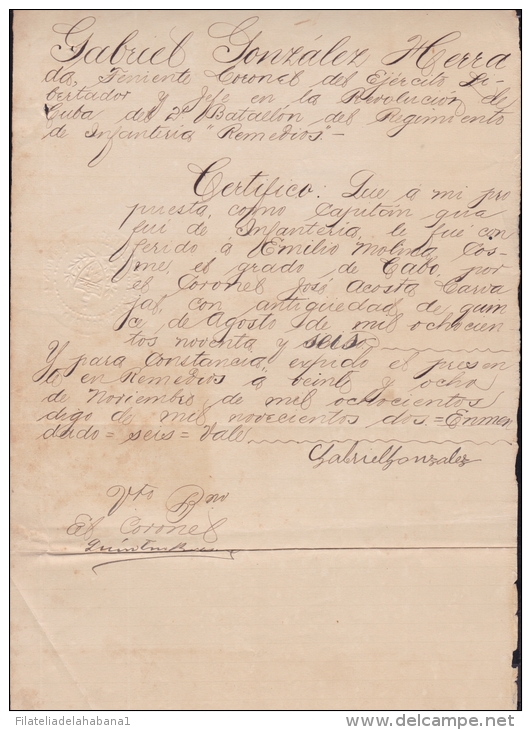 Gabriel González Herra
da, Teniente Coronel del Ejército Li-
bertador y Jefe en la Revolución de
Cuba del 2º Batallón del Regimiento
de Infanteria "Remedios".-
Certifico: Que á mi pro
puesta, como Capitán que
fui de Infanteria, le fué con
ferido á Emilio Molina Cos-
me, el grado de Cabo, por
el Coronel José Acosta Carva
jal, con antigüedad de quin
ce de Agosto de mil ochocien
tos noventa y seis
Y para constancia, expido el presen
te en Remedios á veinte y ocho
de Noviembre de mil ochocientos
digo de mil novecientos dos.=Enmen
dado=seis=Vale
Gabriel Gonzalez
Vto Bno
El Coronel
Filateliadelahabana1
www.delcampe.net